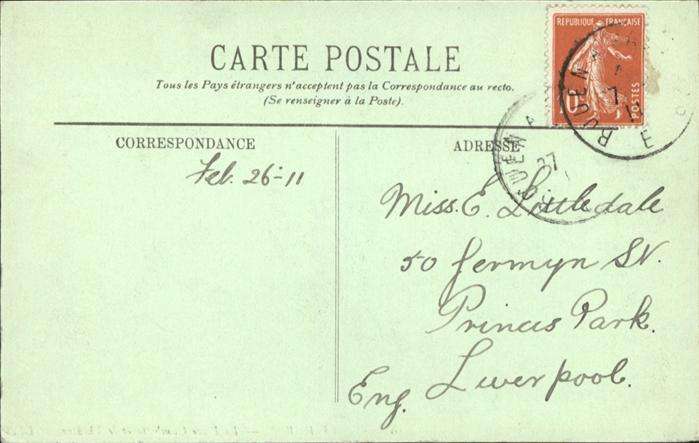 CARTE POSTALE
Tous les Pays étrangers n'acceptent pas la Correspondance au recto.
(Se renseigner à la Poste).
REPUBLIQUE FRANÇAISE
POSTES
10
ROUEN
CORRESPONDANCE
ADRESSE
Feb. 26-11
Miss. E. Littledale
50 Jermyn St.
Princes Park.
Liverpool.
Eng.